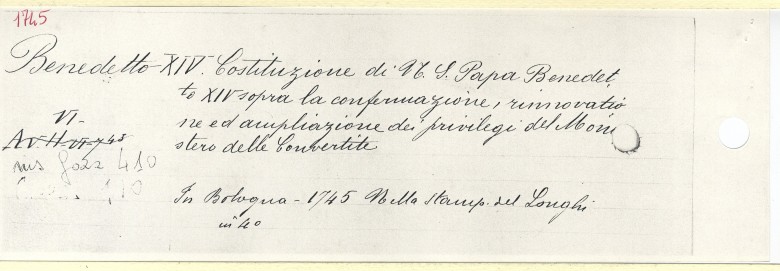 1745
Benedetto XIV. Costituzione di N. S. Papa Benedet
to XIV sopra la confermazione, rinnovatio
ne ed ampliazione dei privilegi del Moni
stero delle Convertite
VI.
ms Gozz 410
In Bologna - 1745 Nella Stamp. del Longhi
in 4o